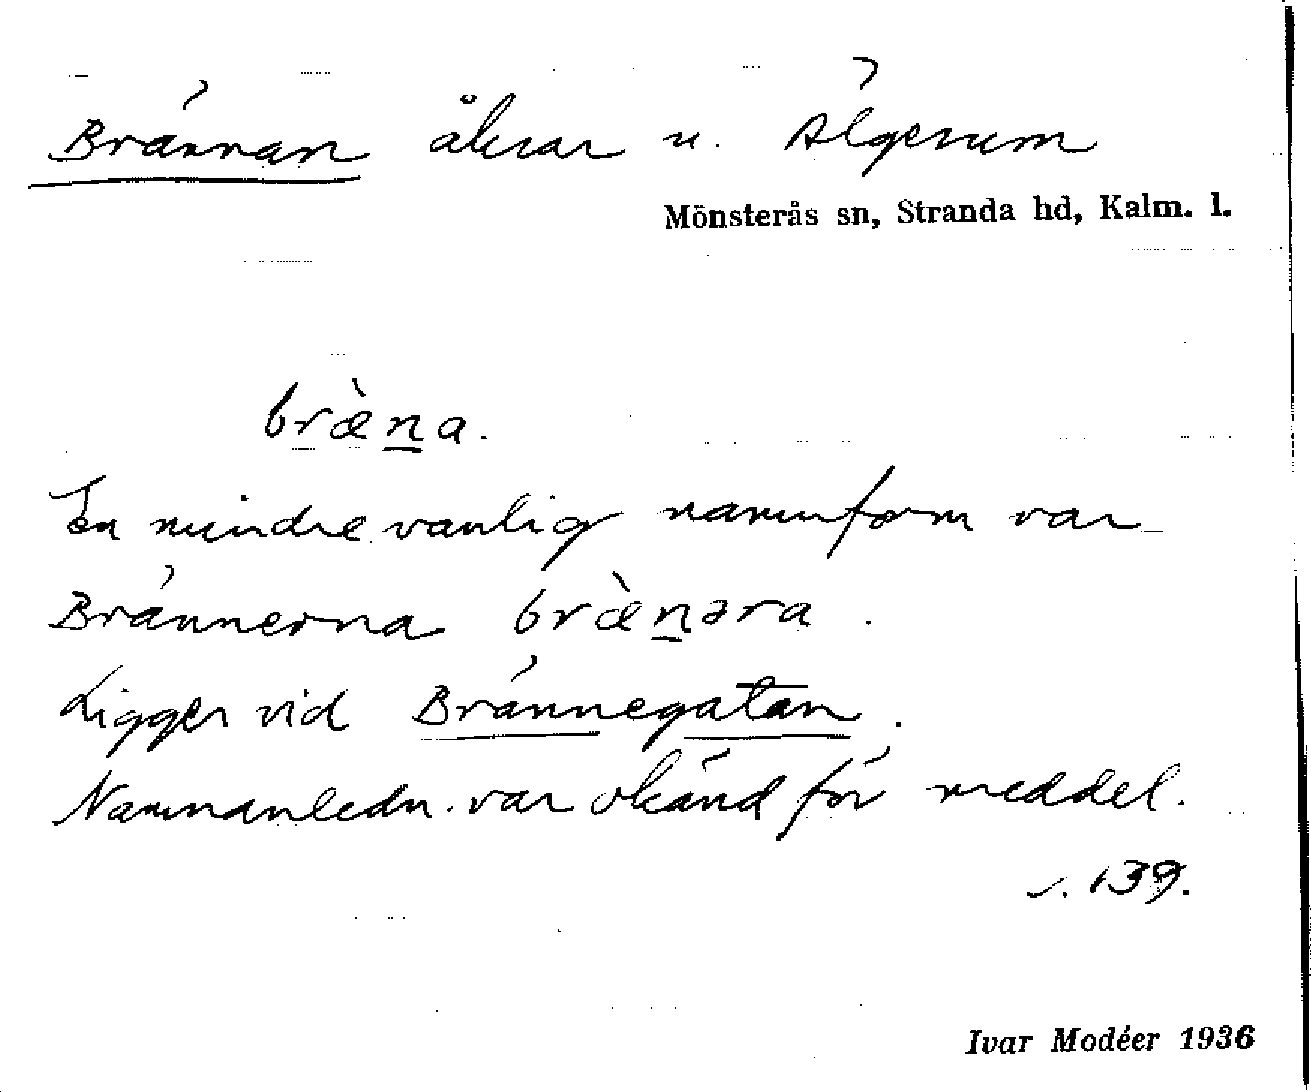 Brännan åkrar u. Älgerum
Mönsterås sn, Stranda hd, Kalm. l.
bræ̀na.
En mindre vanlig namnform var
Brännerna bræ̀nəra.
Ligger vid Brännegatan.
Namnanledn. var okänd för meddel.
s. 139.
Ivar Modéer 1936